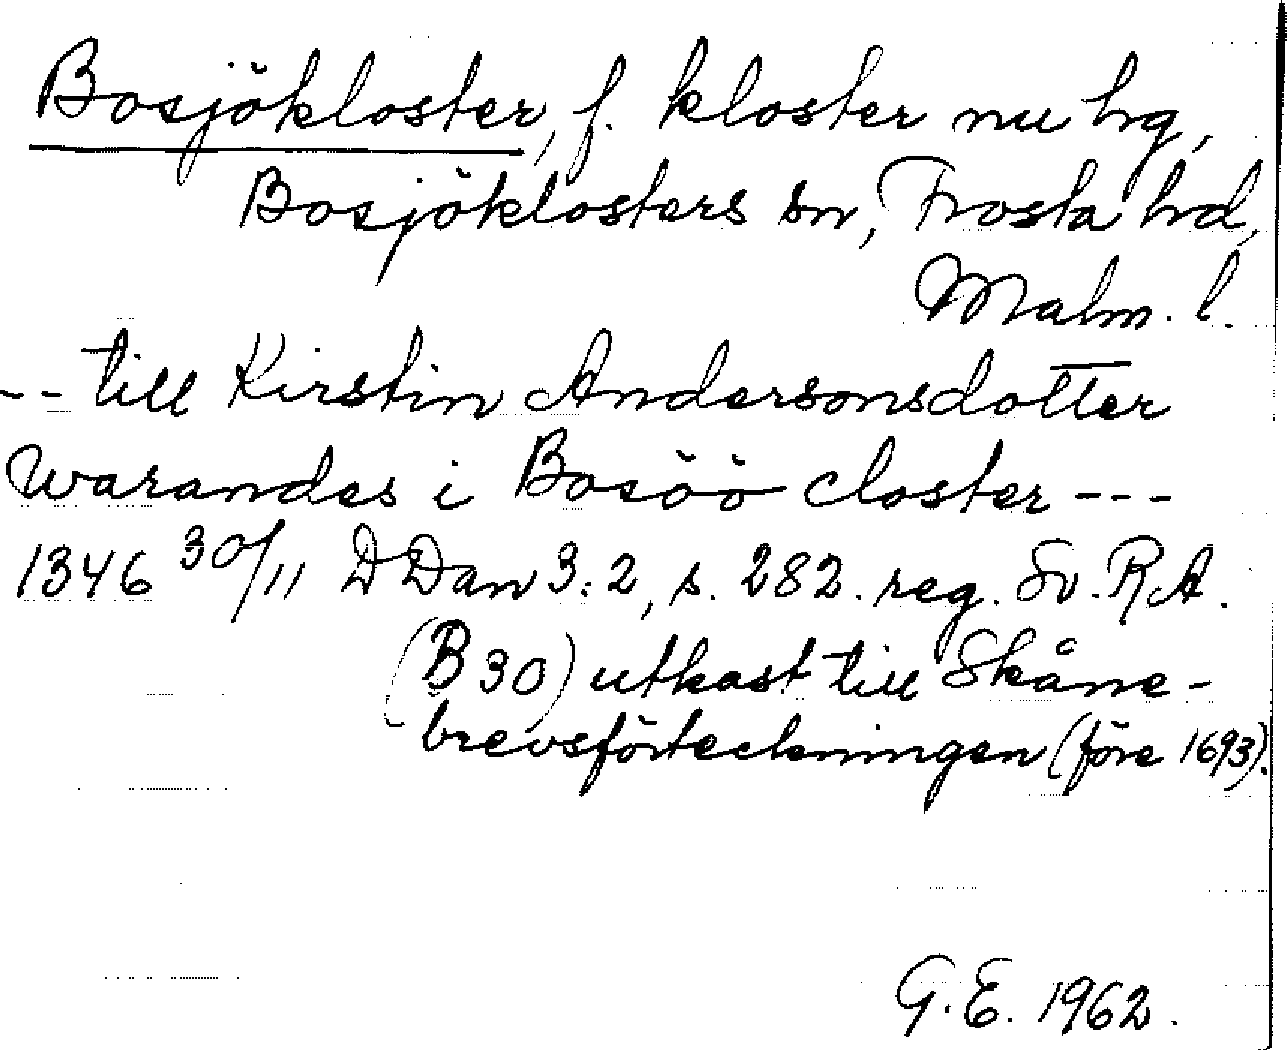 Bosjökloster, f. kloster nu hg,
Bosjöklosters sn, Frosta hd,
Malm. l.
-- till Kirstin Andersonsdotter
warandes i Bosöö closter ---
1346 30/11 DDan 3:2, s. 282. reg. Sv. RA.
(B 30) utkast till Skåne-
brevsförteckningen (före 1693).
G. E. 1962.